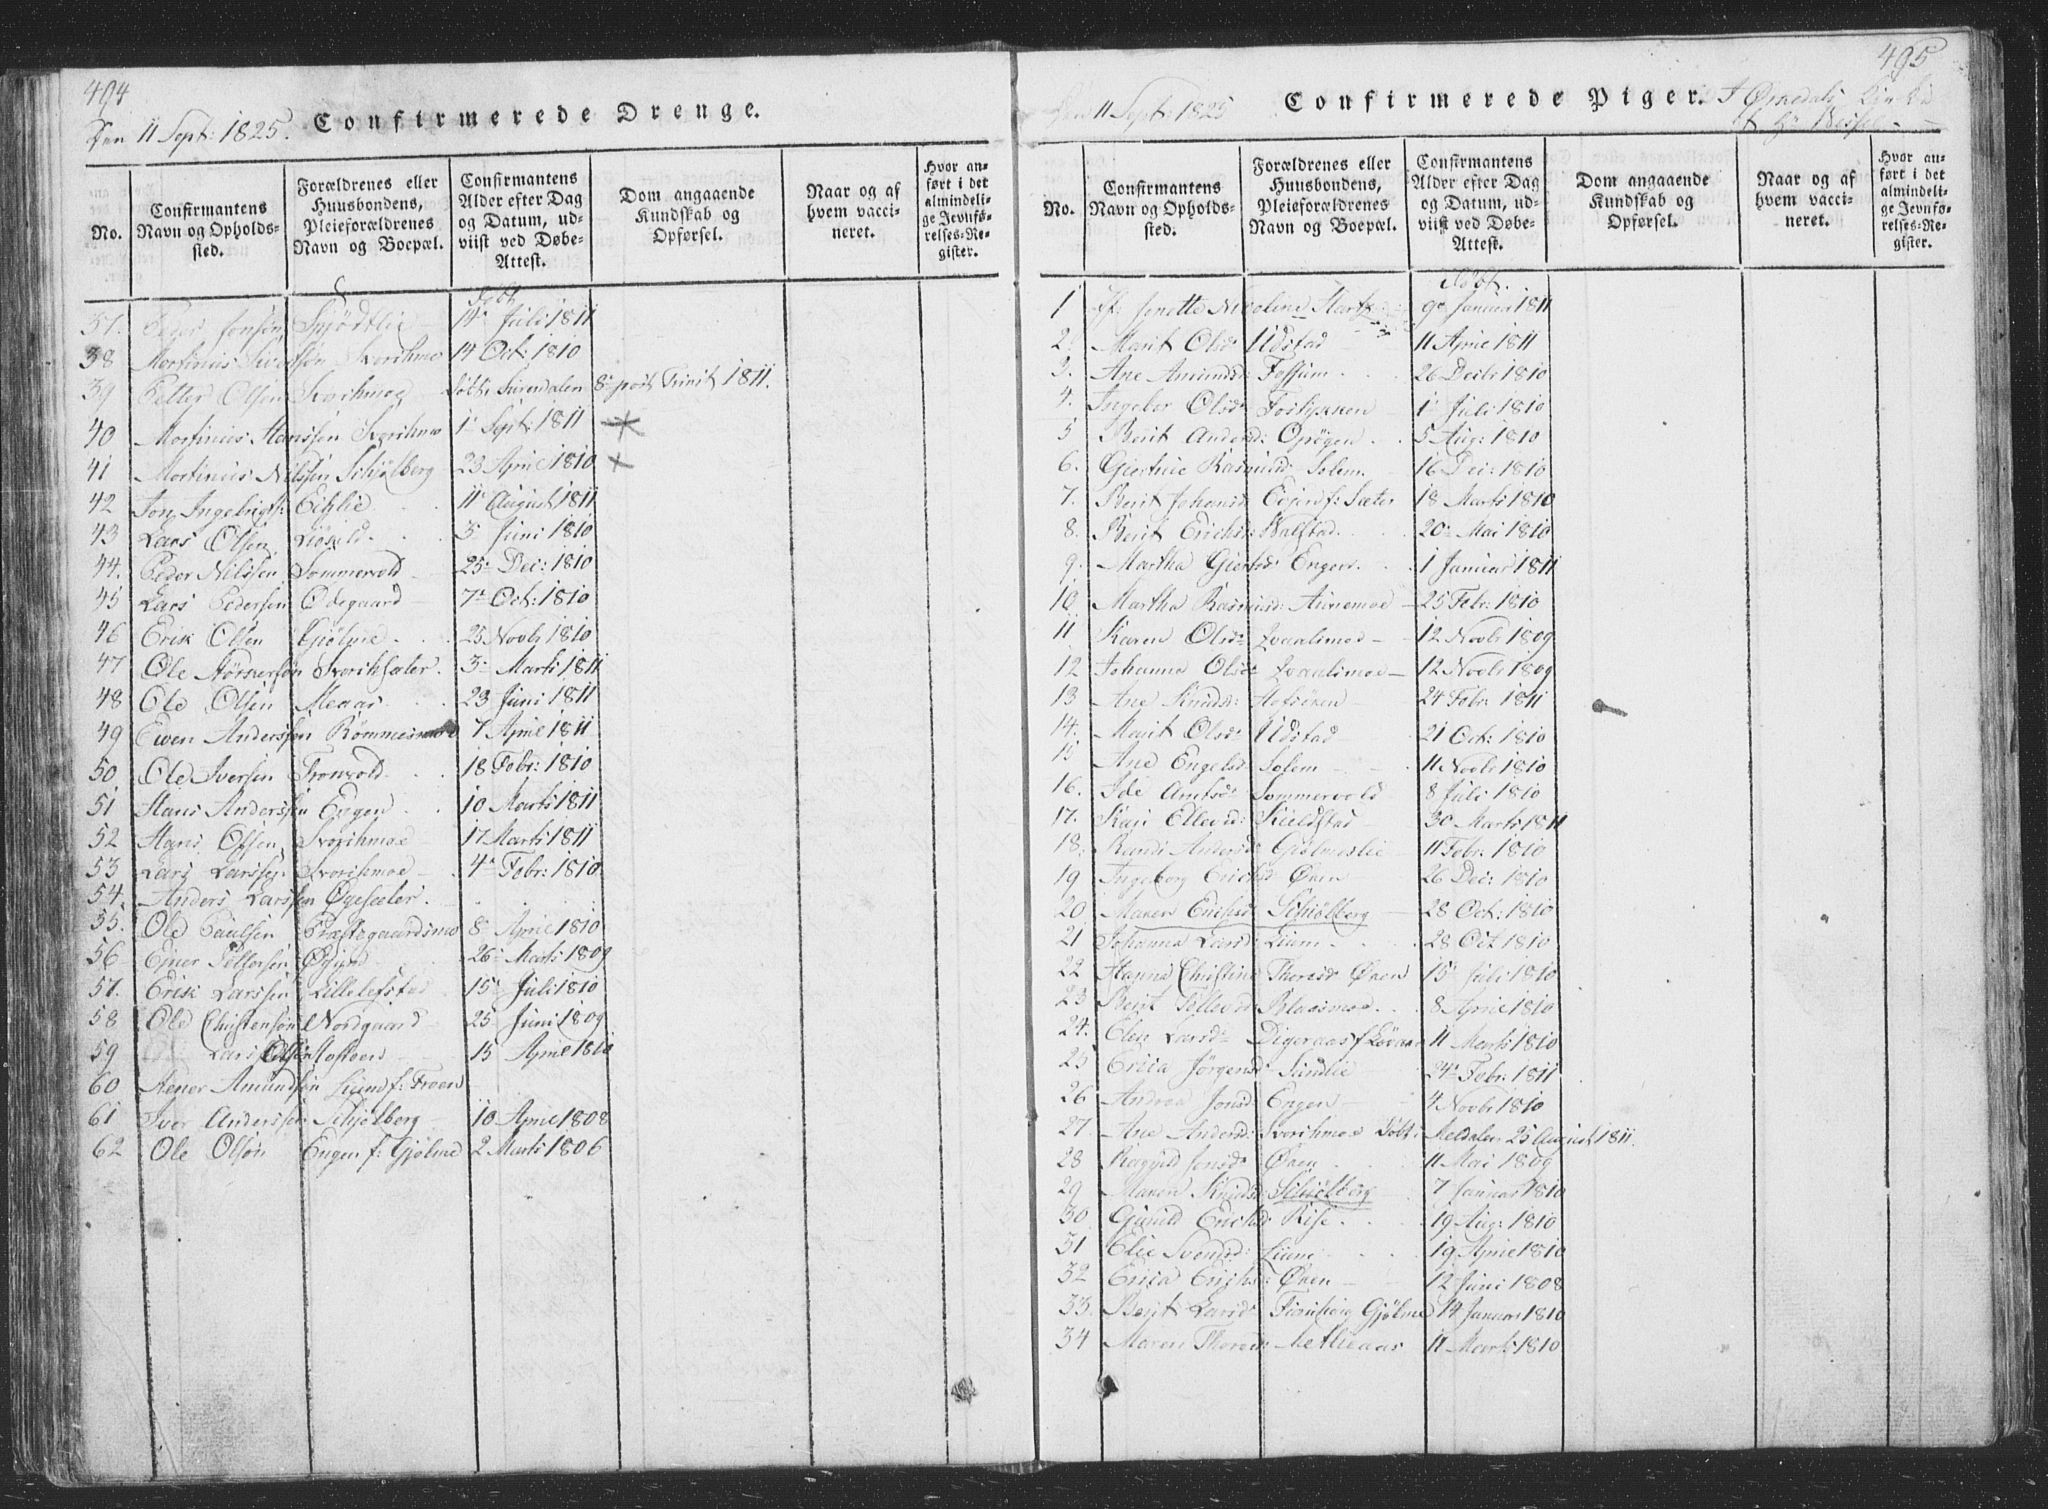 494
Den 11 Sept: 1825. Confirmerede Drenge.
No. Confirmantens Navn og Opholdssted. Forældrenes eller Huusbondens, Pleieforældrenes Navn og Boepæl. Confirmantens Alder efter Dag og Datum, udviist ved Døbe-Attest. Dom angaaende Kundskab og Opførsel. Naar og af hvem vaccineret. Hvor anført i det almindelige Jevnførelses-Register.
Døbt
37. Peder Jonsøn 14 Juli 1811
38 Mortinus Svorkmoe 14 Oct: 1810
39 Petter Olsen Svorkmoe døbt i Surendalen 8 post Trinit 1811.
40 Mortinus Hanssen Svorkmoe 1 Sept: 1811
41 Mortinus Nilssen Schjølberg 23 April 1810
42 Jon Ingebrigts: Eiklie 11 August 1811
43 Lars Olsen 3 Juni 1810
44. Peder Nilssen Sommervold 25 Dec: 1810
45 Lars Pedersen Ødegaard 7 Oct: 1810
46 Erik Olsen Gjølme 25 Novb 1810
47 Ole Svorksæter. 3 Marti 1811
48 Ole Olsen Meaas 23 Juni 1811
49 Ewen Anderssen Rømmesmoe 7 April 1811
50 Ole Iversen Tronvold 18 Febr: 1810
51 Hans Anderssen Engen 10 Marti 1811
52 Hans Olsen Svorkmoe 17 Marti 1811
53 Lars Larssen Svorkmoe 4 Febr: 1810
54. Anders Larssen
55. Ole Paulsen Præstegaardsmo 8 April 1810
56 Ener Pettersen 26 Marti 1809
57. Erik Larssen 15 Juli 1810
58 Ole Christensøn Nordgaard 25 Juni 1809
59 Lars Olsen 15 April 1810
60 Amundsøn f: Froen
61 Iver Anderssen Schjølberg 10 April 1808
62 Ole Olsøn Engen f: Gjølme 2 Marti 1806
495
Den 11 Sept: 1825 Confirmerede Piger. I Ørkedals Kirke
af Hr Bessel
No. Confirmantens Navn og Opholdssted. Forældrenes eller Huusbondens, Pleieforældrenes Navn og Boepæl. Confirmantens Alder efter Dag og Datum, udviist ved Døbe-Attest. Dom angaaende Kundskab og Opførsel. Naar og af hvem vaccineret. Hvor anført i det almindelige Jevnførelses-Register.
Døbt.
1 Jf: Jenette Nicoline 9 Januar 1811
2. Marit Olsd Udstad 11 April 1811
3. Ane Amundsd: Fossum 26 Decb: 1810
4. Ingebor Olsd 1 Juli 1810
5 Berit Andersd: Opøgen 5 Aug: 1810
6. Giertrue Rasmusd Solem 16 Dec: 1810
7. Berit Johansd Sæter 18 Marti 1810
8. Berit Erichsd: Walstad 20 Mai 1810
9. Martha Giertsd Engen 1 Januar 1811
10 Martha Rasmusd: Aunemoe 25 Febr: 1810
11 Karen Olsd 12 Novb 1809
12 Johanna Olsd 12 Novb 1809
13 Ane Knudsd: 24 Febr: 1811
14. Marit Olsd Udstad 21 Oct: 1810
15 Ane Engelsd Solem 11 Novb 1810
16. Ide Arntsd Sommervold 8 Juli 1810
17. Kari Ellevsd: Kieldstad 30 Marti 1811
18. Randi Andersd Gjølmeslie 11 Febr: 1810
19 Ingeborg Erichsd Øren 26 Dec: 1810
20 Maren Erichsd Schiølberg 28 Oct: 1810
21 Johanna Larsd: Lium 28 Oct 1810
22 Hanna Christina Thoresd Øren 15 Juli 1810
23 Berit Blaasmoe 8 April 1810
24. Elen Larsd Digeraas f: 11 Marti 1810
25 Erica Jørgensd Sundlie 24 Febr: 1811
26 Andrea Jonsd Engen 4 Novb 1810
27. Ane Andersd: Svorkmoe døbt i Meldalen 25 August 1811.
28 Ragnild Jonsd Øren 11 Mai 1809
29 Maren Knudsd: Schiølberg 7 Januar 1810
30 Gunild Erichsd Rise 19 Aug: 1810
31 Elie Svendsd: Liene 19 April 1810
32 Erica Erichsd: Øren 12 Juni 1808
33. Berit Larsd Gjølme 14 Januar 1810
34 Maren Thoresd: 11 Marti 1810